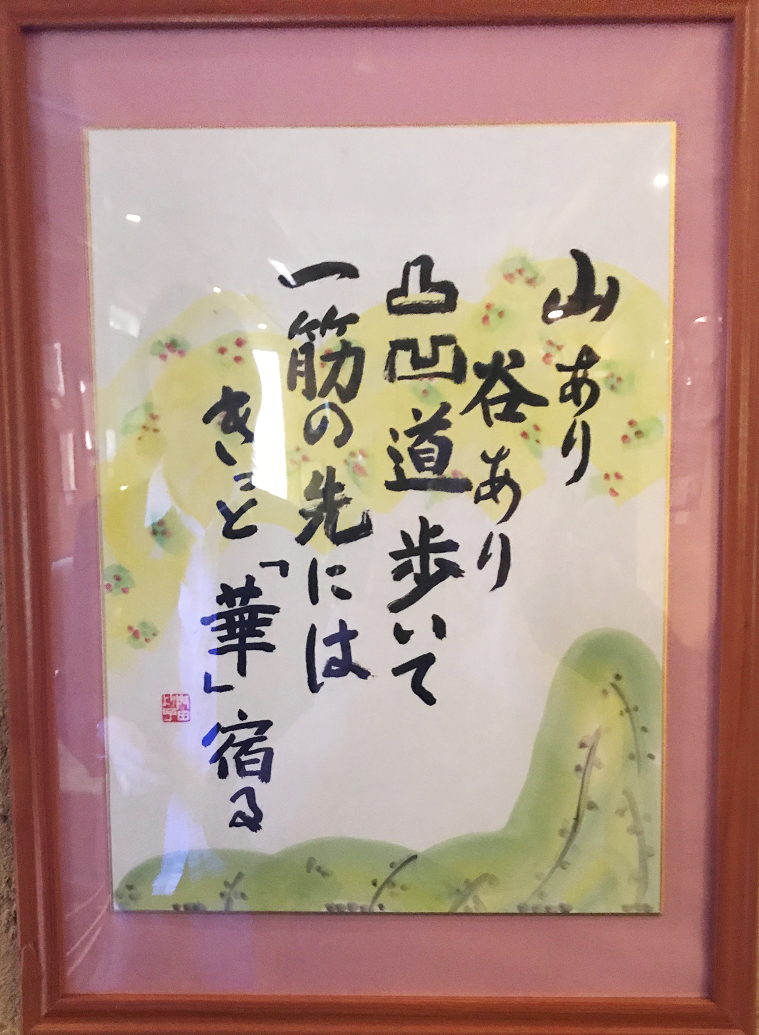 山あり
谷あり
凸凹道歩いて
一筋の先には
きっと「華」宿る